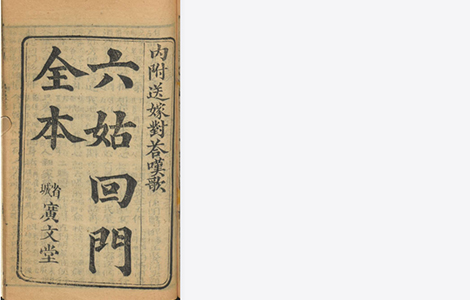 內附送嫁對荅嘆歌
六姑回門
全本
省城廣文堂